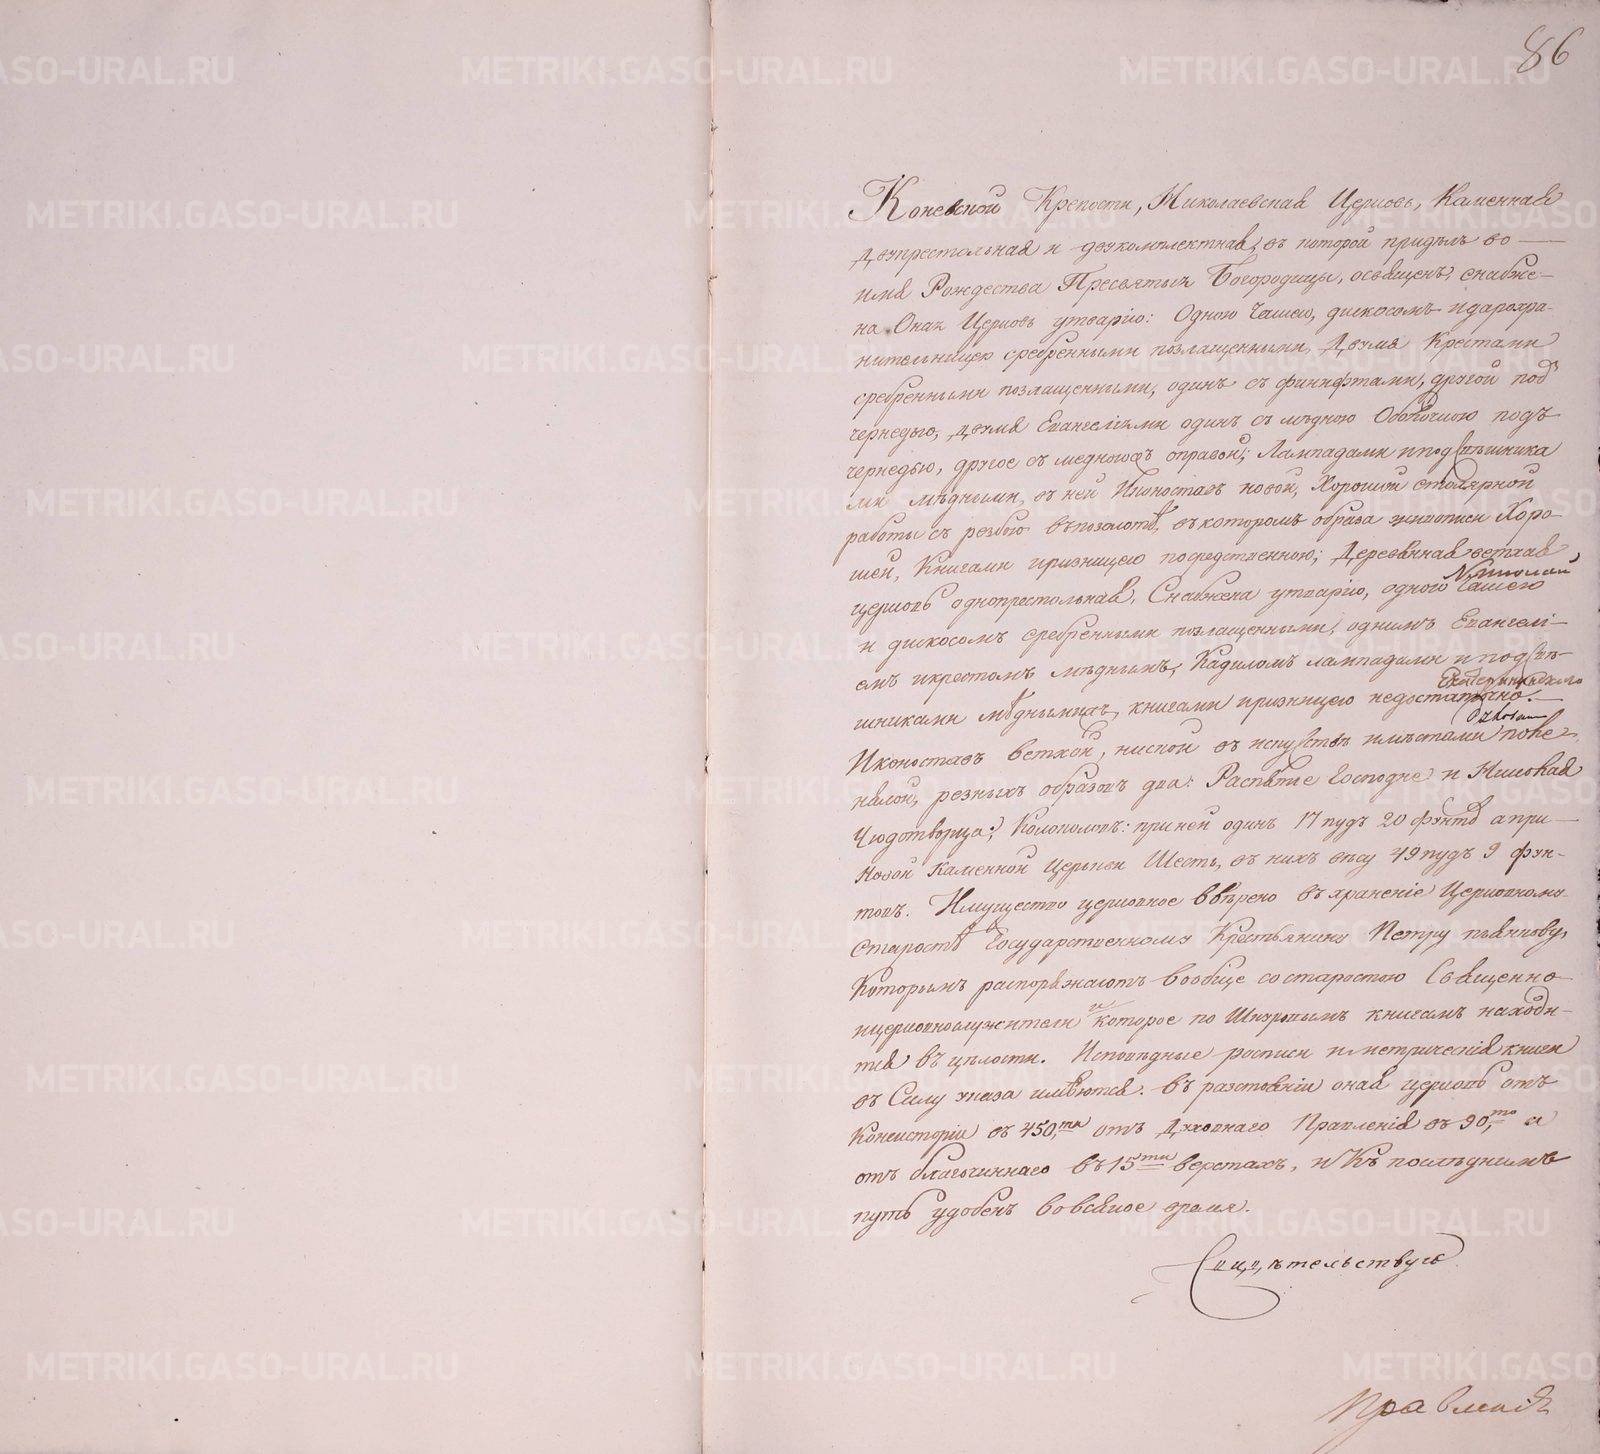 86
Коневской Крепости, Николаевская Церковь, Каменная
двупрестольная и двукомплектная, въ которой придѣлъ во
имя Рождества Пресвятыя Богородицы, освященъ, снабже-
на Оная Церковь утварію: Одною Чашею, дискосомъ и дарохра-
нительницею сребренными позлащенными, Двумя Крестами
сребренными позлащенными, одинъ съ финифтами, другой подъ
чернедью, двумя Евангеліями одинъ съ мѣдною Оболочкою подъ
чернедью, другое съ медною оправой; Лампадами и подсвѣшника
ми мѣдными, въ ней Иконостасъ новой, Хорошой столярной
работы съ резбою въ позолотѣ, въ которомъ образа живописи Хоро-
шей, Книгами и ризницею посредственною; Деревянная ветхая
церковь однопрестольная, Снабжена утварію, одного Чашею
и дискосомъ сребренными позлащенными, однимъ Евангелі-
емъ и крестомъ мѣднымъ, Кадиломъ лампадами и подсвѣ-
шниками мѣдными, книгами и ризницею недостаточно.
Екатеринбургскаго
Иконостасъ ветхой, ниской въ искуствѣ и мѣстами
резныхъ образовъ два: Распятіе Господне и Николая
Чюдотворца; Колоколовъ: при ней одинъ 17 пудъ 20 фунтъ а при
Новой Каменной Церькви Шесть, въ нихъ вѣсу 49 пудъ 9 фун-
товъ. Имущество церковное ввѣрено въ храненіе Церковному
Старостѣ Государственному Крестьянину Петру
Которымъ распоряжаютъ вообще со старостою Священно
и церковнослужители и которое по Шнуровымъ книгамъ находи-
тся въ цѣлости. Исповѣдные росписи и метрическія книги
въ Силу указа имѣются. въ разстояніи оная церковь отъ
Консисторіи въ 450,ти отъ Духовнаго Правленія въ 90,то а
отъ благочиннаго въ 15ти верстахъ, и Къ послѣднимъ
путь удобенъ во всякое время.
Свидѣтельствую
Правленія